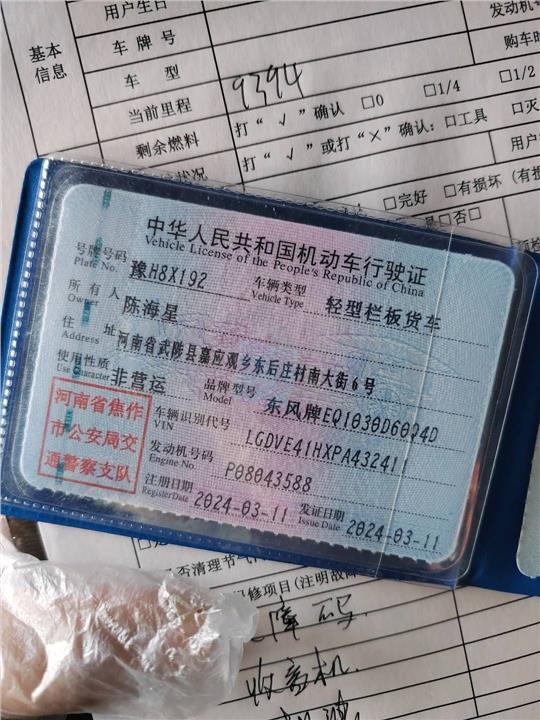 用户生日
发动机号
基本
信息
车牌号
购车时
车型
当前里程
9394
剩余燃料
打“√”确认 □0 □1/4 □1/2
打“√”或打“×”确认：□工具 □灭
状况
□完好 □有损坏（有损
用户
□否□
中华人民共和国机动车行驶证
Vehicle License of the People's Republic of China
号牌号码 豫H8X192 车辆类型 轻型栏板货车
Plate No. Vehicle Type
所有人 陈海星
Owner
住址 河南省武陟县嘉应观乡东后庄村南大街6号
Address
使用性质 非营运 品牌型号 东风牌EQ1030D60Q4D
Use Character Model
河南省焦作
市公安局交
通警察支队
车辆识别代号 LGDVE41HXPA432411
VIN
发动机号码 P08043588
Engine No.
注册日期 2024-03-11 发证日期 2024-03-11
Register Date Issue Date
否清理节气
修项目（注明故障
障码
收音机